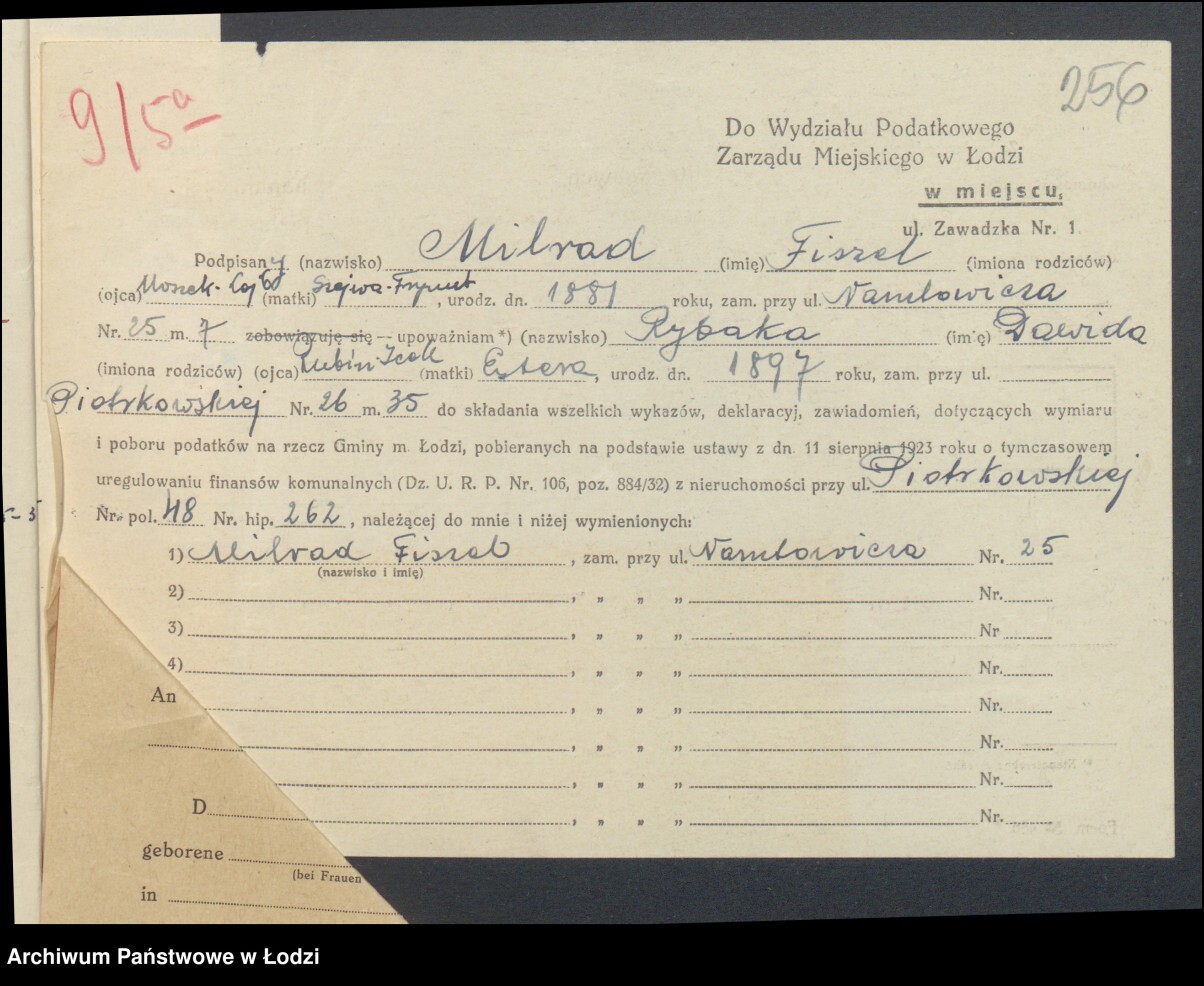 9/5a
256
Do Wydziału Podatkowego
Zarządu Miejskiego w Łodzi
w miejscu,
ul. Zawadzka Nr. 1
Podpisany (nazwisko) Milrad (imię) Fiszel (imiona rodziców)
(ojca) Moszek- (matki) Szejwa-Frymet, urodz. dn. 1881 roku, zam. przy ul. Narutowicza
Nr. 25 m. 7 zobowiązuję się — upoważniam *) (nazwisko) Rybaka (imię) Dawida
(imiona rodziców) (ojca) Rubin-Icek (matki) Estera, urodz. dn. 1897 roku, zam. przy ul.
Piotrkowskiej Nr. 26 m. 35 do składania wszelkich wykazów, deklaracyj, zawiadomień, dotyczących wymiaru
i poboru podatków na rzecz Gminy m. Łodzi, pobieranych na podstawie ustawy z dn. 11 sierpnia 1923 roku o tymczasowem
uregulowaniu finansów komunalnych (Dz. U. R. P. Nr. 106, poz. 884/32) z nieruchomości przy ul. Piotrkowskiej
Nr. pol. 48 Nr. hip. 262, należącej do mnie i niżej wymienionych:
1) Milrad Fiszel, zam. przy ul. Narutowicza Nr. 25
(nazwisko i imię)
2) , „ „ „ Nr.
3) , „ „ „ Nr
4) , „ „ „ Nr.
An , „ „ „ Nr.
, „ „ „ Nr.
, „ „ „ Nr.
D , „ „ „ Nr.
geborene
(bei Frauen
in
Archiwum Państwowe w Łodzi